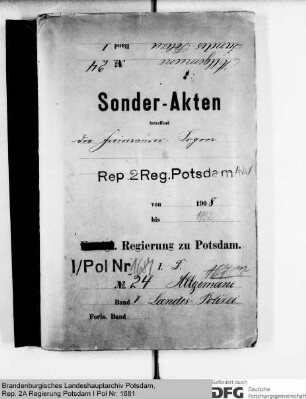 Band 1 Landes Polizei
№ 24 Allgemein
Sonder-Akten
betreffend
die Freimaurer Logen
Rep. 2 Reg. Potsdam
von 1908
bis
Regierung zu Potsdam.
I/Pol Nr 1681 I. P.
№ 24 Allgemein
Band 1 Landes-Polizei
Forts. Band
Brandenburgisches Landeshauptarchiv Potsdam,
Rep. 2A Regierung Potsdam I Pol Nr. 1681
Gefördert durch
DFG Deutsche
Forschungsgemeinschaft